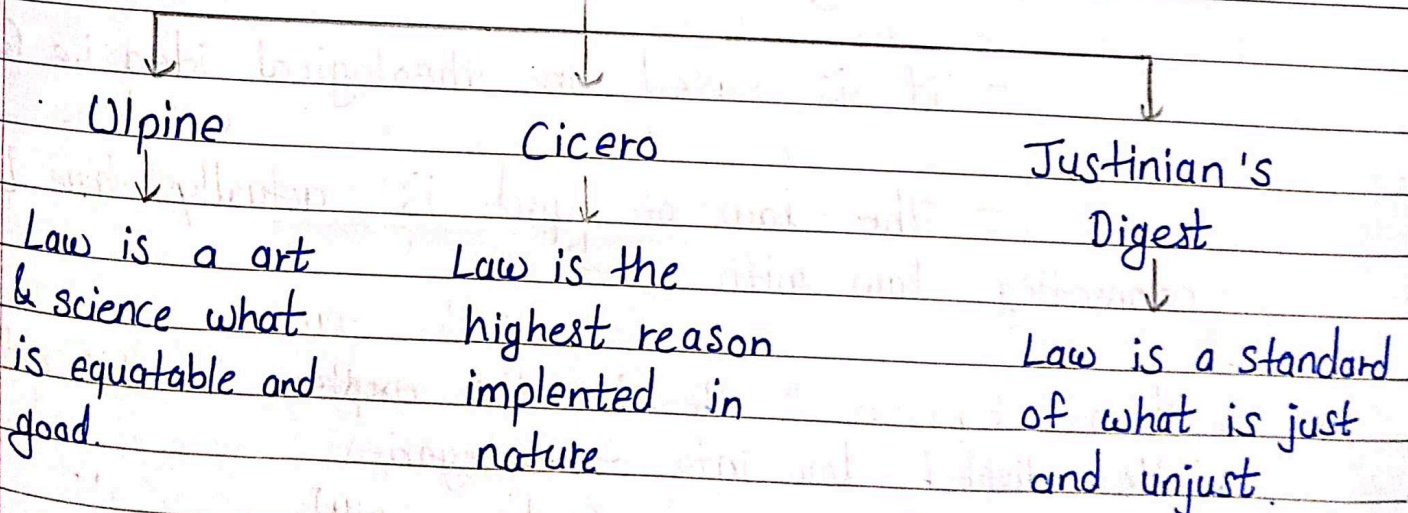 Ulpine
Law is a art
& science what
is equatable and
good.
Cicero
Law is the
highest reason
implented in
nature
Justinian's
Digest
Law is a standard
of what is just
and unjust.